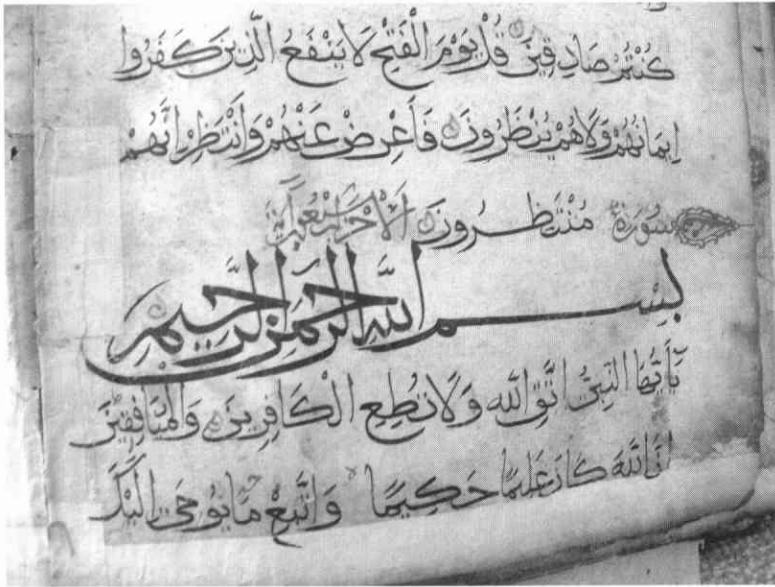 كُنْتُمْ صَادِقِينَ قُلْ يَوْمَ الْفَتْحِ لَا يَنْفَعُ الَّذِينَ كَفَرُوا
اِيمَانُهُمْ وَلَا هُمْ يُنْظَرُونَ فَأَعْرِضْ عَنْهُمْ وَانْتَظِرْ اِنَّهُمْ
سُورَةُ مُنْتَظِرُونَ اَلْاَحْزَابِ
بِسْمِ اللَّهِ الرَّحْمَنِ الرَّحِيمِ
يَاأَيُّهَا النَّبِيُّ اتَّقِ اللَّهَ وَلَا تُطِعِ الْكَافِرِينَ وَالْمُنَافِقِينَ
اِنَّ اللَّهَ كَانَ عَلِيمًا حَكِيمًا وَاتَّبِعْ مَا يُوحَى اِلَيْكَ